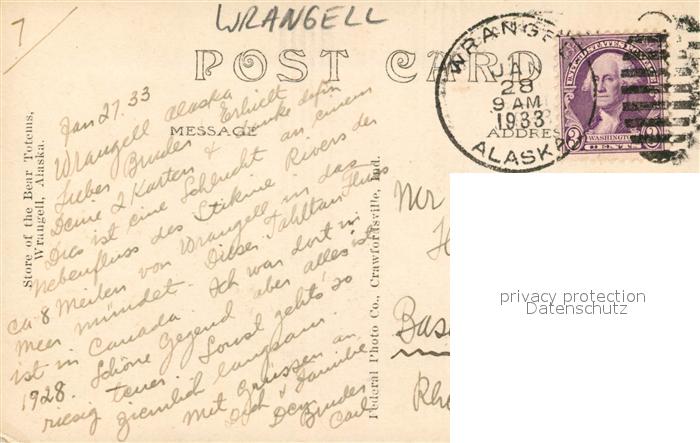 7
WRANGELL
POST CARD
WRANGELL
JAN
28
9 AM
1933
ALASKA
UNITED STATES POSTAGE
WASHINGTON
3 CENTS 3
MESSAGE
ADDRESS
Store of the Bear Totems,
Wrangell, Alaska.
Federal Photo Co., Crawfordsville, Ind.
Jan 27. 33
Wrangell Alaska
Lieber Bruder Erhielt
Deine 2 Karten & danke dafür
Dies ist eine Schlucht an einem
Nebenfluss des Stikine Rivers der
ca 8 Meilen von Wrangell in das
Meer mündet. Dieser Tahltan Fluss
ist in Canada. Ich war dort in
1928. Schöne Gegend aber alles ist
riesig teuer. Sonst geht's so
ziemlich langsam.
Mit Grüssen an
Dich & Familie
Dein Bruder
Carl
Mr
H
Bas
Rh
privacy protection
Datenschutz